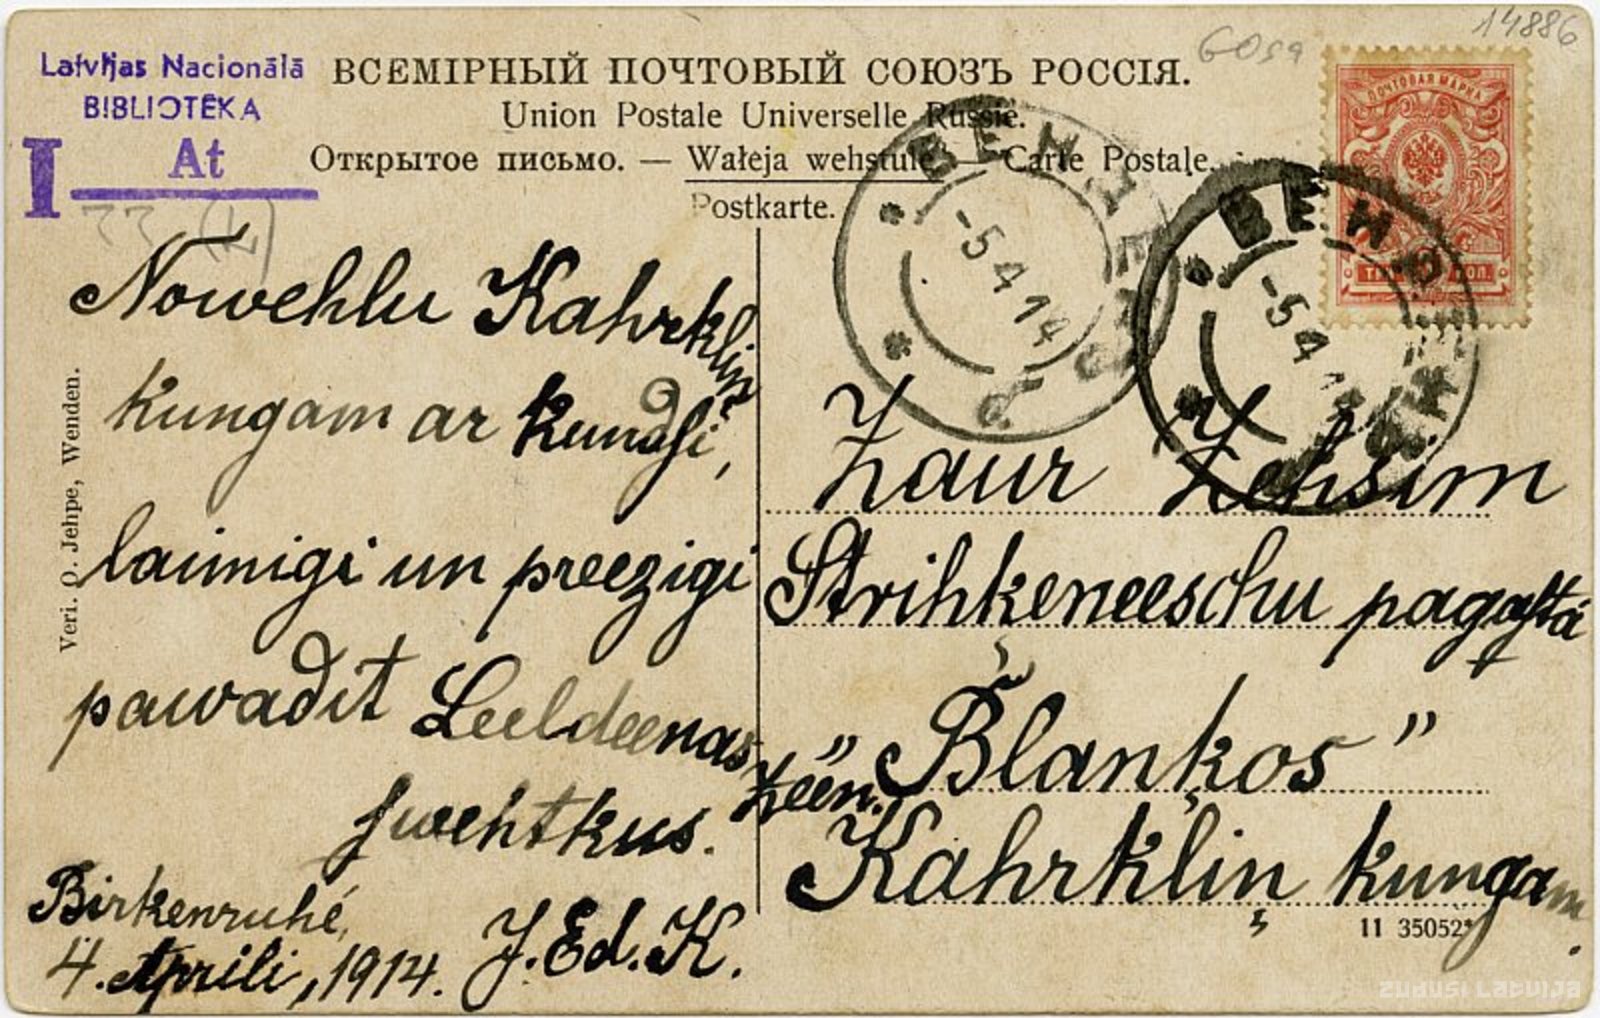 14886
Latvijas Nacionālā
BIBLIOTĒKA
I At
ВСЕМІРНЫЙ ПОЧТОВЫЙ СОЮЗЪ РОССІЯ.
Union Postale Universelle Russie.
Открытое письмо. — Walєja wehstule. — Carte Postale.
Postkarte.
ПОЧТОВАЯ МАРКА
ТРИ КОП.
ВЕНДЕНЪ
-5 4 14
ВЕНДЕНЪ
-5 4 14
Verl. O. Jehpe, Wenden.
Nowehlu Kahrkliņ
kungam ar kundsi,
laimigi un preezigi
pawadit Leeldeenas
swehtkus.
Birkenruhé,
4. Aprili, 1914. J. Ed. K.
Zaur Zehsim
Strihkeneeschu pagastā
"Blankos"
Zeen.
Kahrkliņ kungam.
11 35052*
ZUDUSI LATVIJA